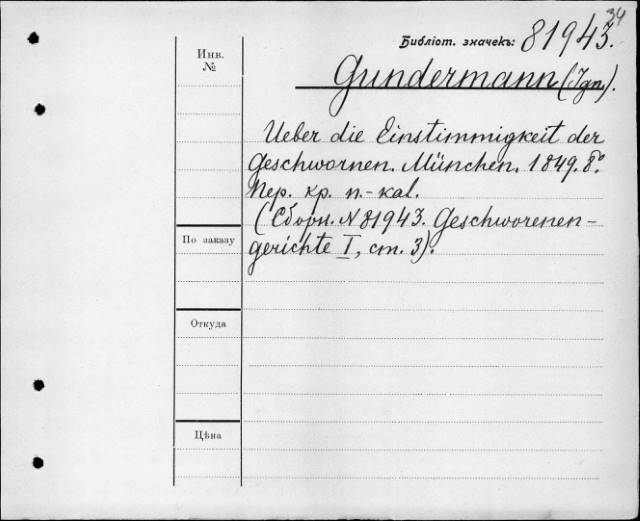 34
Библіот. значекъ: 81943.
Инв.
№
Gundermann (Ign.).
Ueber die Einstimmigkeit der
Geschwornen. München. 1849. 8°
Пер. кр. п.-кал.
(Сборн. N 81943. Geschworenen-
gerichte I, ст. 3).
По заказу
Откуда
Цѣна